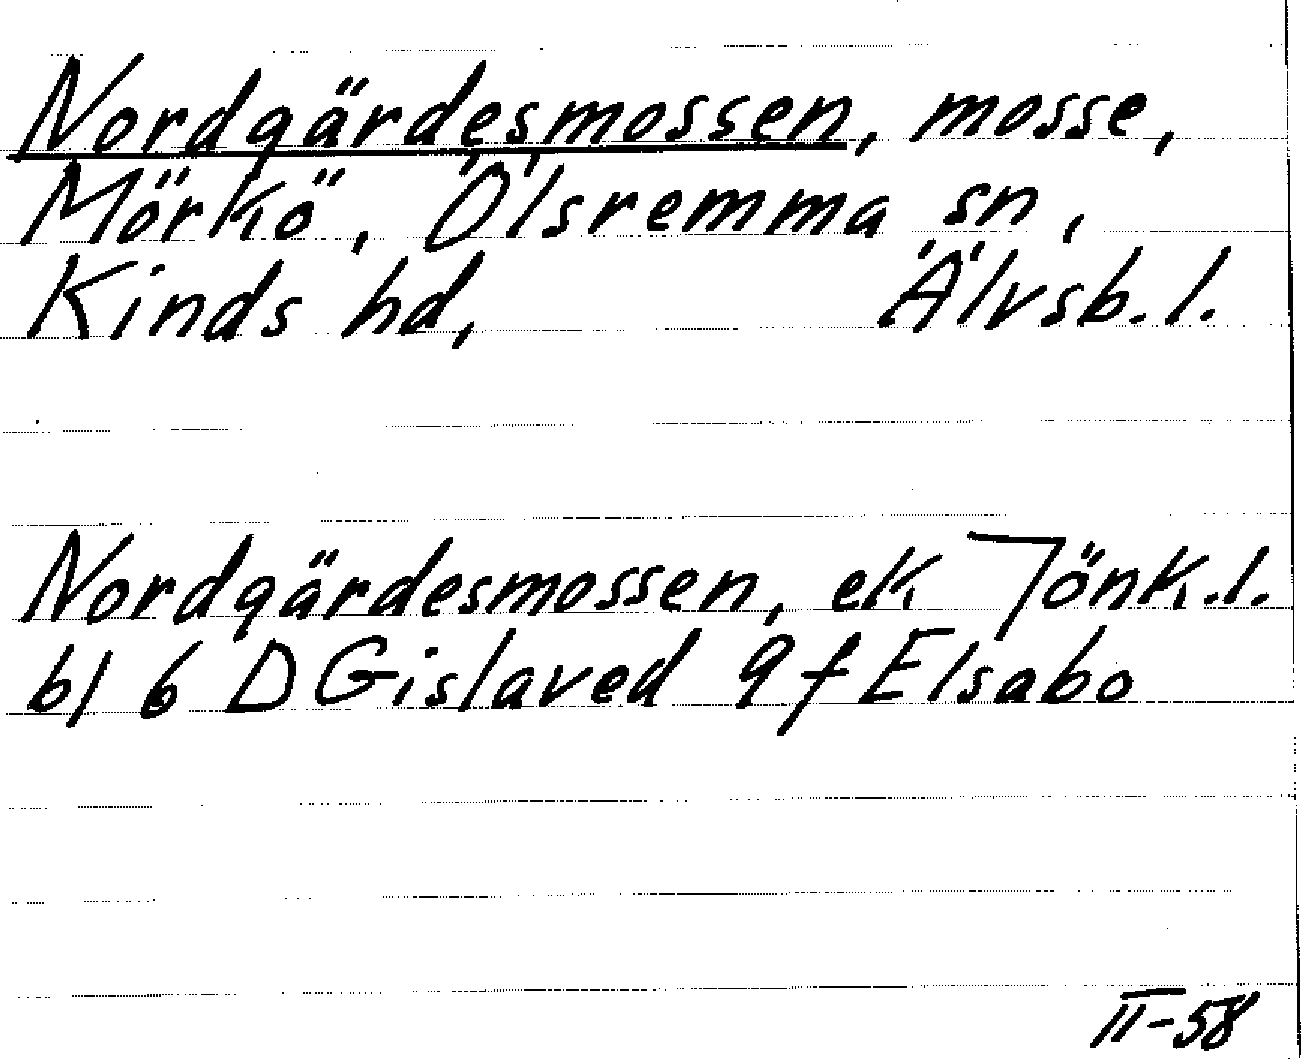 Nordgärdesmossen, mosse,
Mörkö, Ölsremma sn,
Kinds hd, Älvsb.l.
Nordgärdesmossen, ek Jönk.l.
bl 6 D Gislaved 9 f Elsabo
II-58